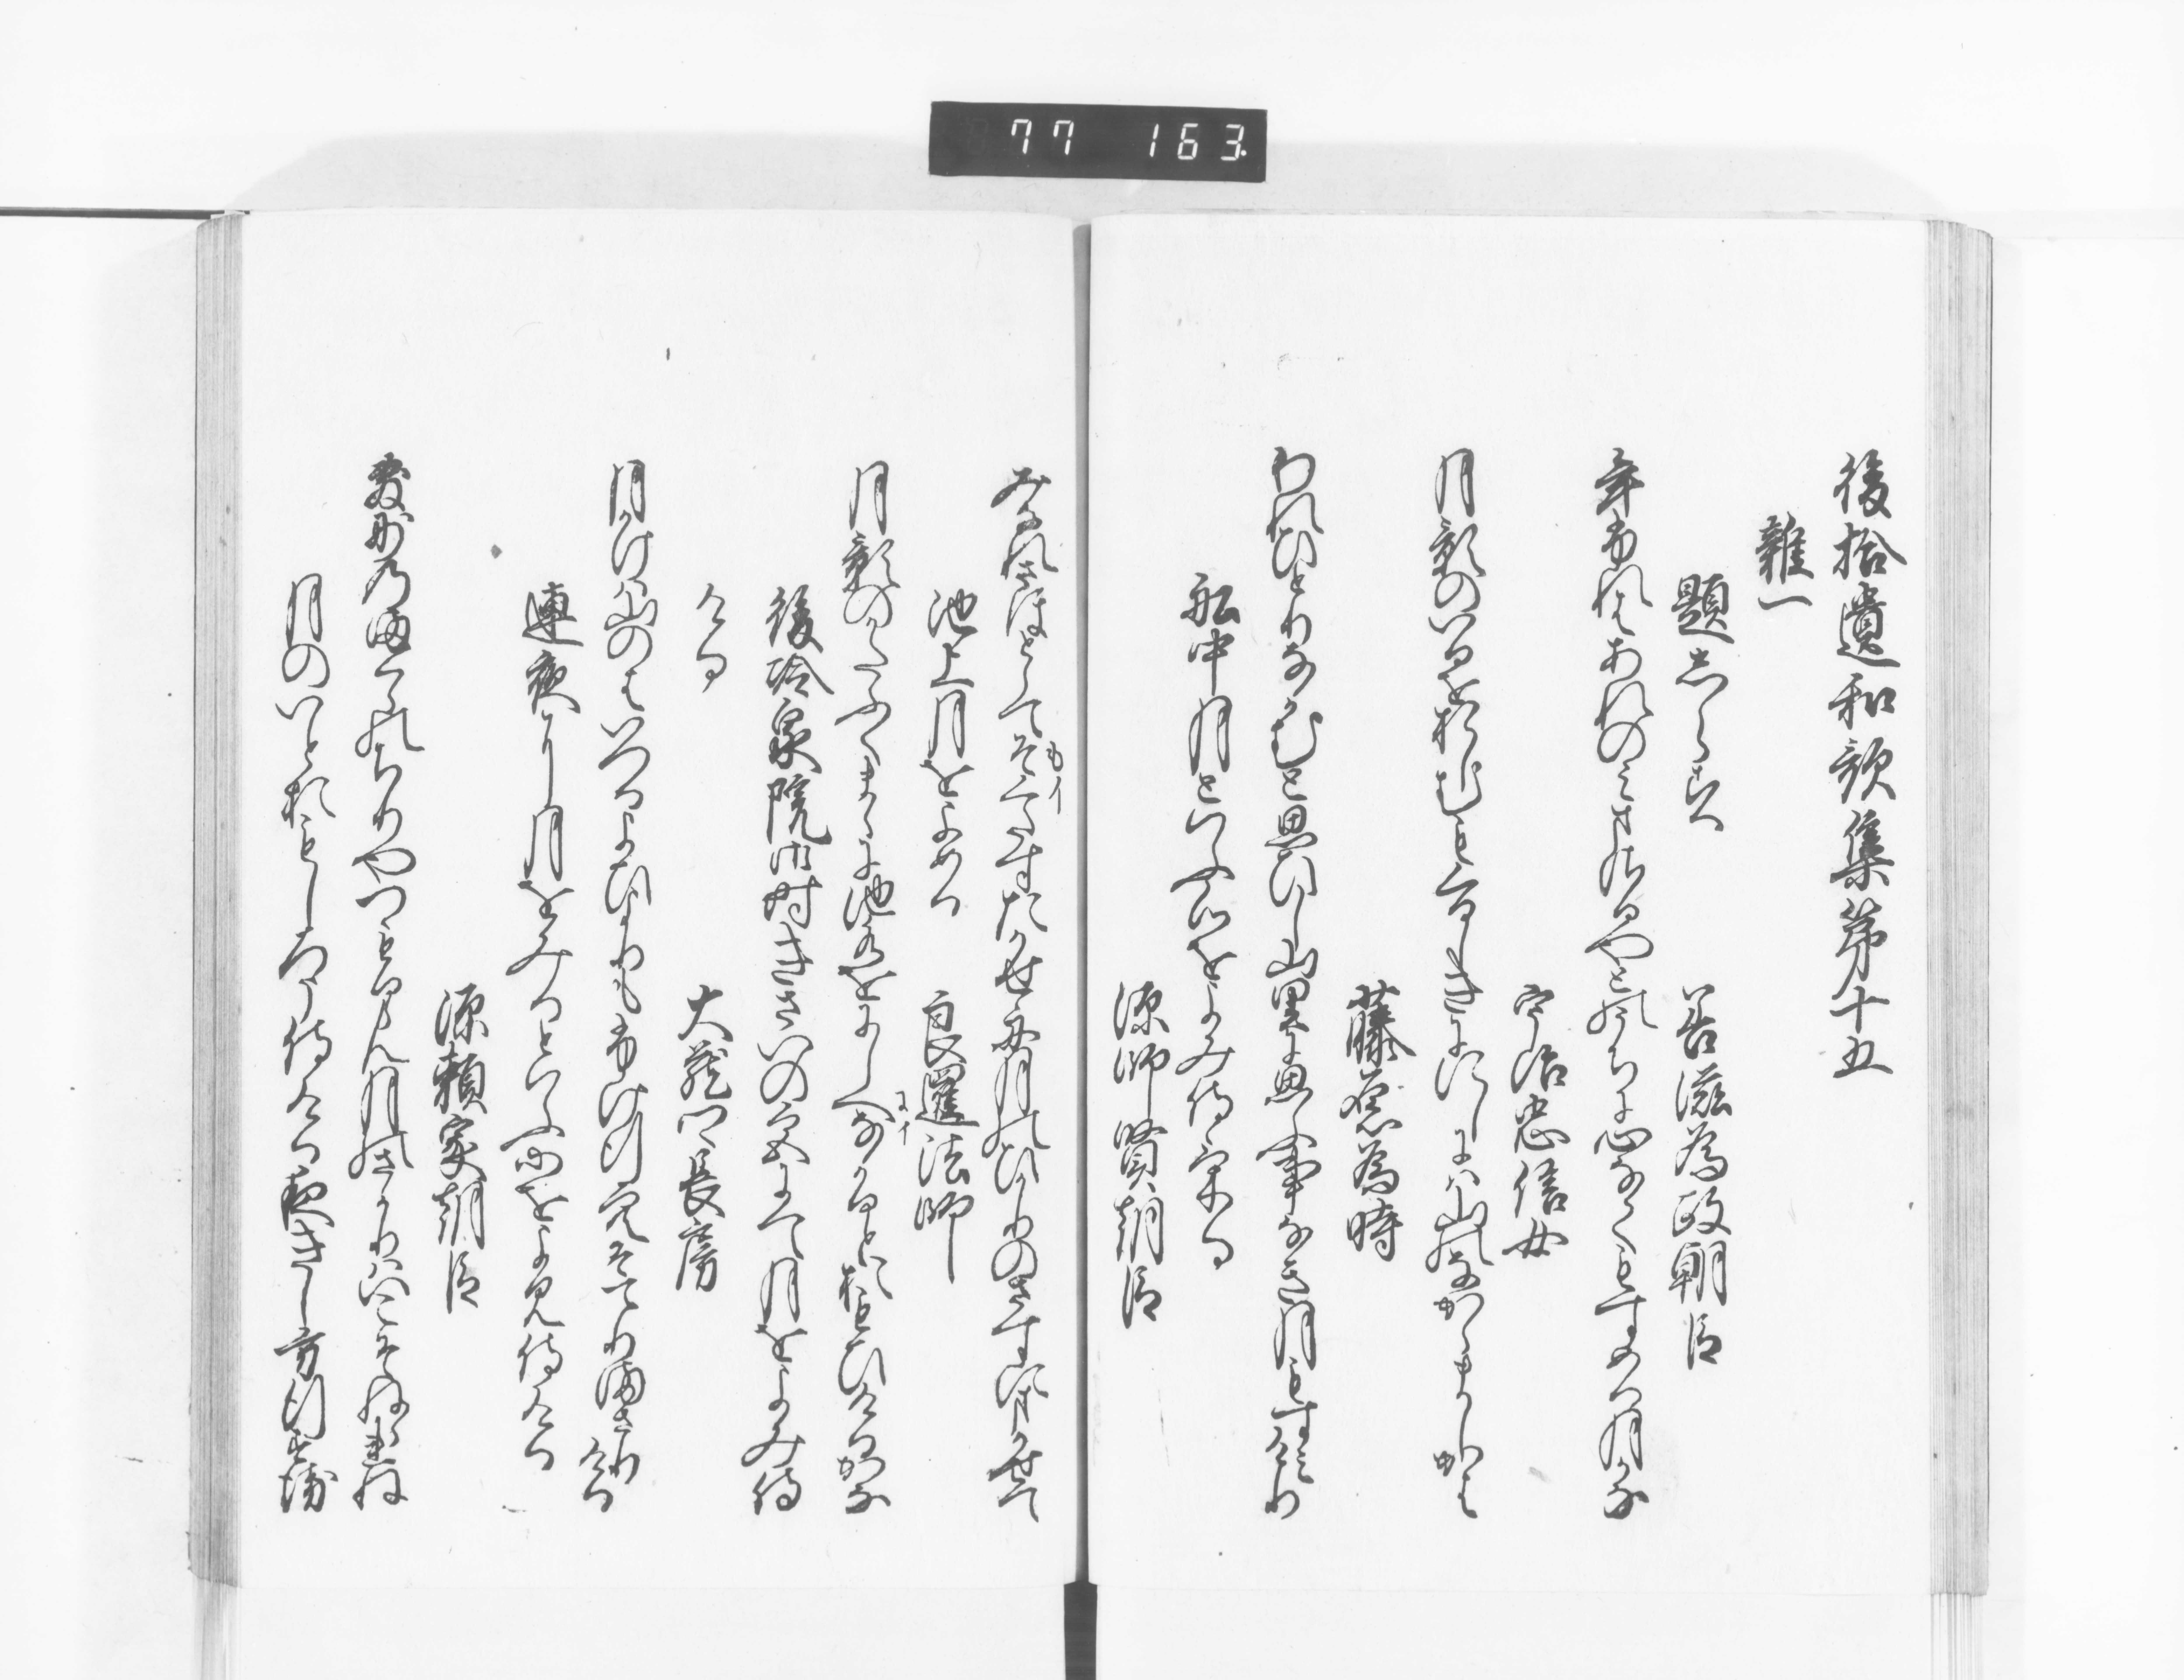 77 163
後拾遺和歌集第十五
雑一
題しらす 善滋為政朝臣
年ふれはあれのみまさるやとのうちに心なかくもすめる月かな
宇治忠信女
月影のいるをおしむもくるしきににしには山のなからましかは
藤原為時
われひとりなかむと思ひし山里に思ふ事なき月もすみけり
船中月といふ心をよみ侍ける
源師賢朝臣
みなれさほとらてそくたすたかせ舟月のひかりのさすにまかせて
もイ
池上月をよめる 良暹法師
月影のかたふくまゝに池水をにしへなかると思ひけるかな
にイ
後冷泉院御時きさいの宮にて月をよみ侍
ける 大蔵卿長房
月かけは山のはいつるよひよりもふけ行空そてりまさりける
連夜に月をみるといふ心をよみ侍ける
源頼家朝臣
敷妙のまくらのちりやつもるらん月のさかりはいこそねられね
月のいとおもしろく侍ける夜きし方行末